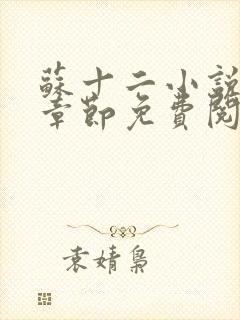 蘇十二小說
章節免費閱
袁婧梟